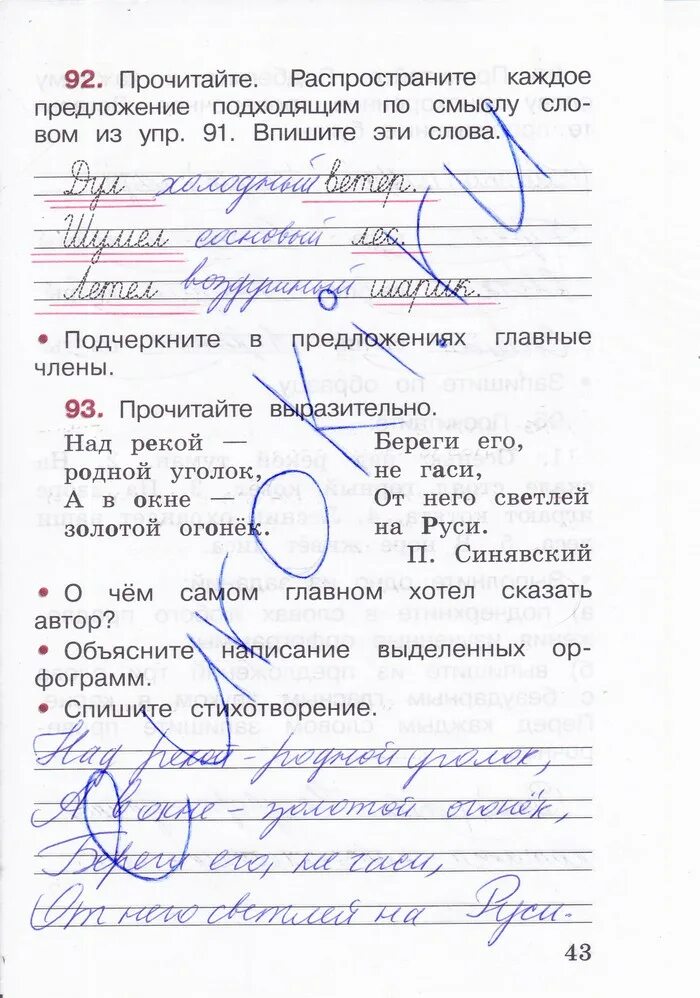 92. Прочитайте. Распространите каждое
предложение подходящим по смыслу сло-
вом из упр. 91. Впишите эти слова.
Дул холодный ветер.
Шумел сосновый лес.
Летел воздушный шарик.
• Подчеркните в предложениях главные
члены.
93. Прочитайте выразительно.
Над рекой —
родной уголок,
А в окне —
золотой огонёк.
Береги его,
не гаси,
От него светлей
на Руси.
П. Синявский
• О чём самом главном хотел сказать
автор?
• Объясните написание выделенных ор-
фограмм.
• Спишите стихотворение.
Над рекой - родной уголок,
А в окне - золотой огонёк,
Береги его, не гаси,
От него светлей на Руси.
43